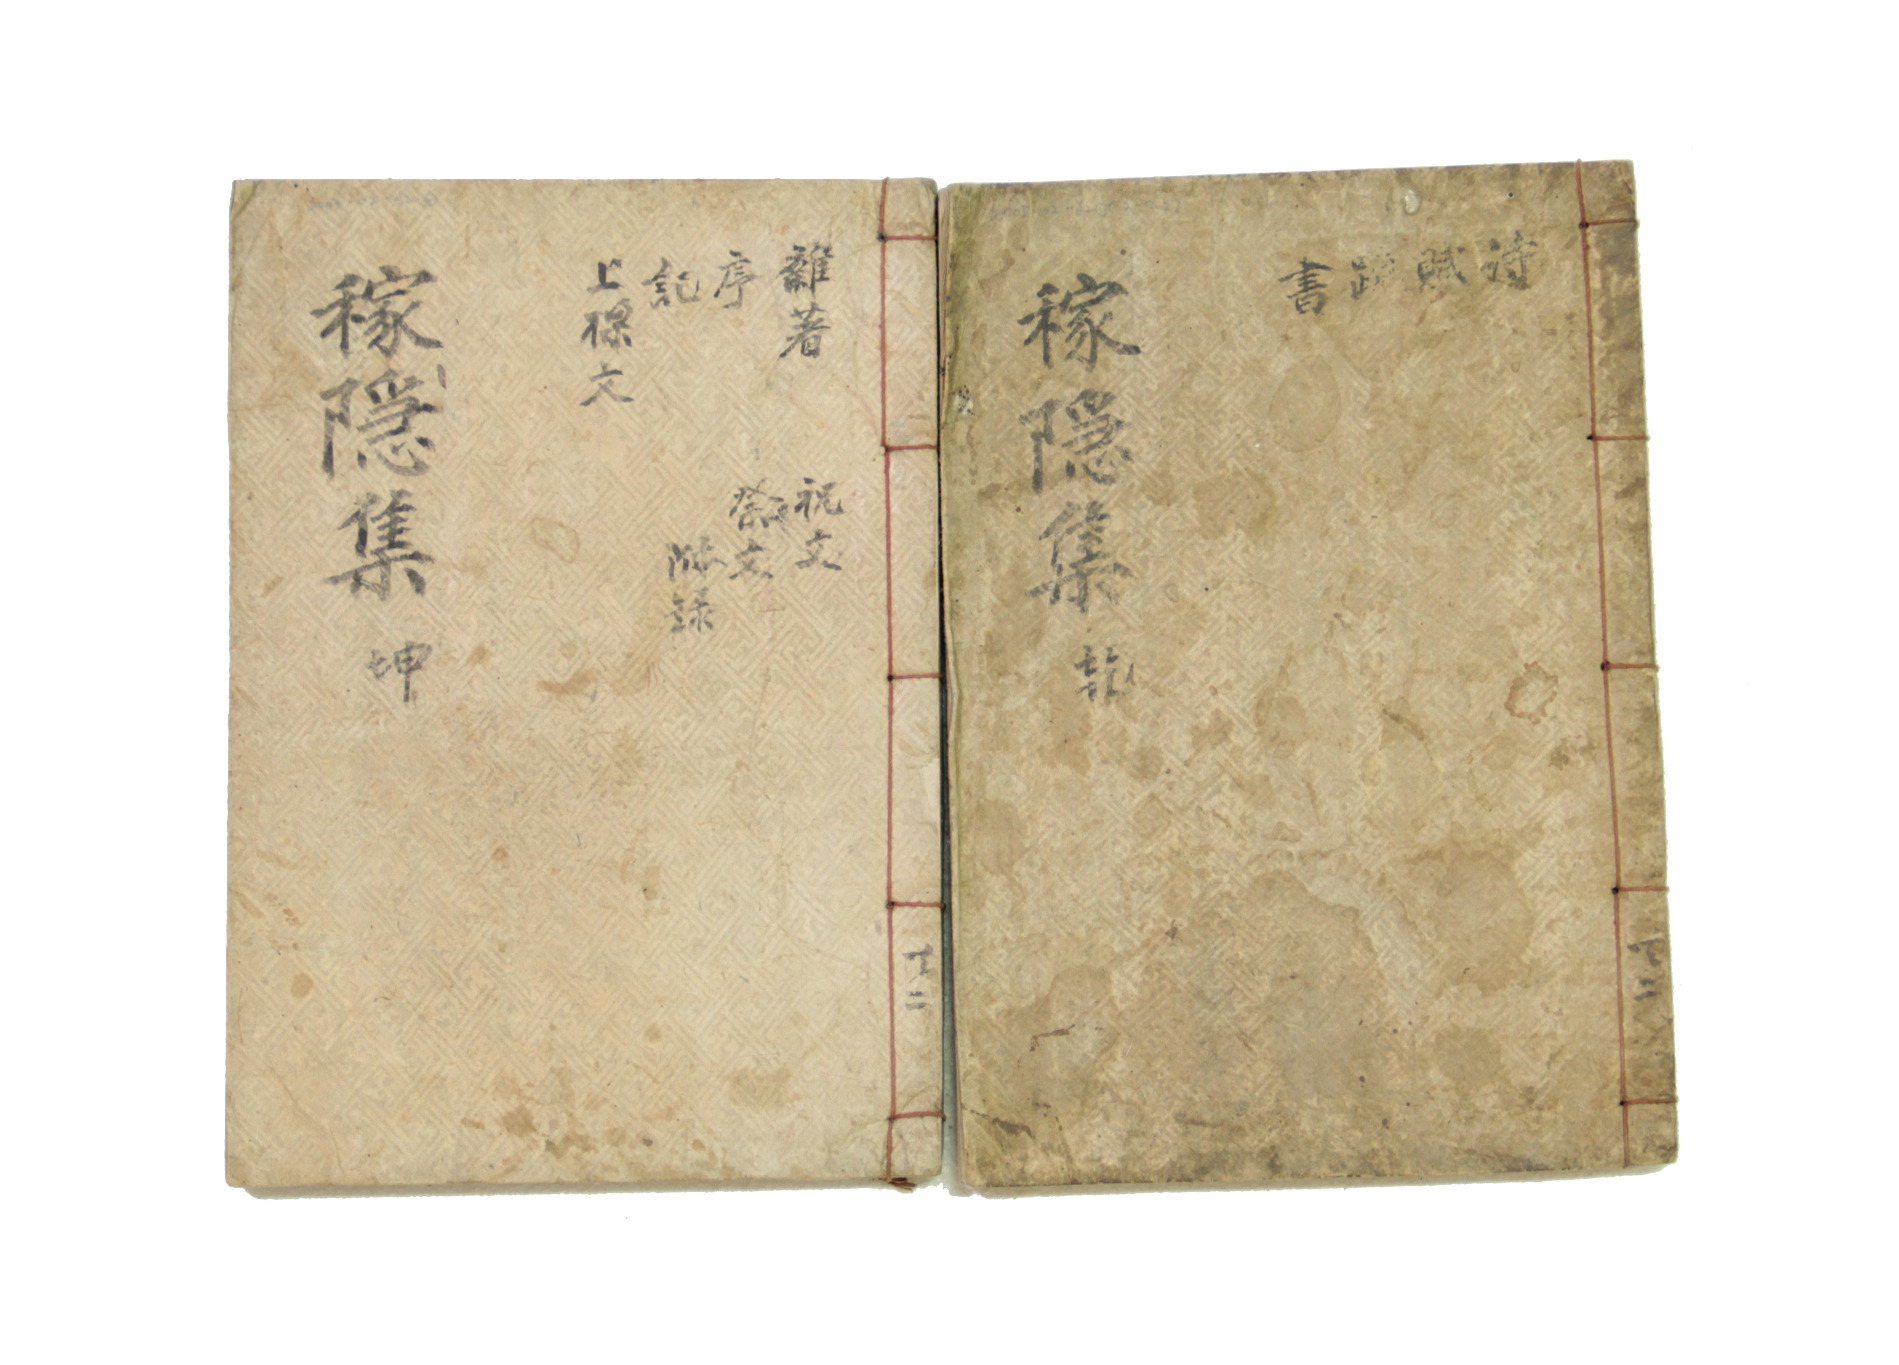 詩
賦
疏
書
稼隱集 乾
共二
雜著
序
記
上樑文
祝文
祭文
附錄
稼隱集 坤
共二